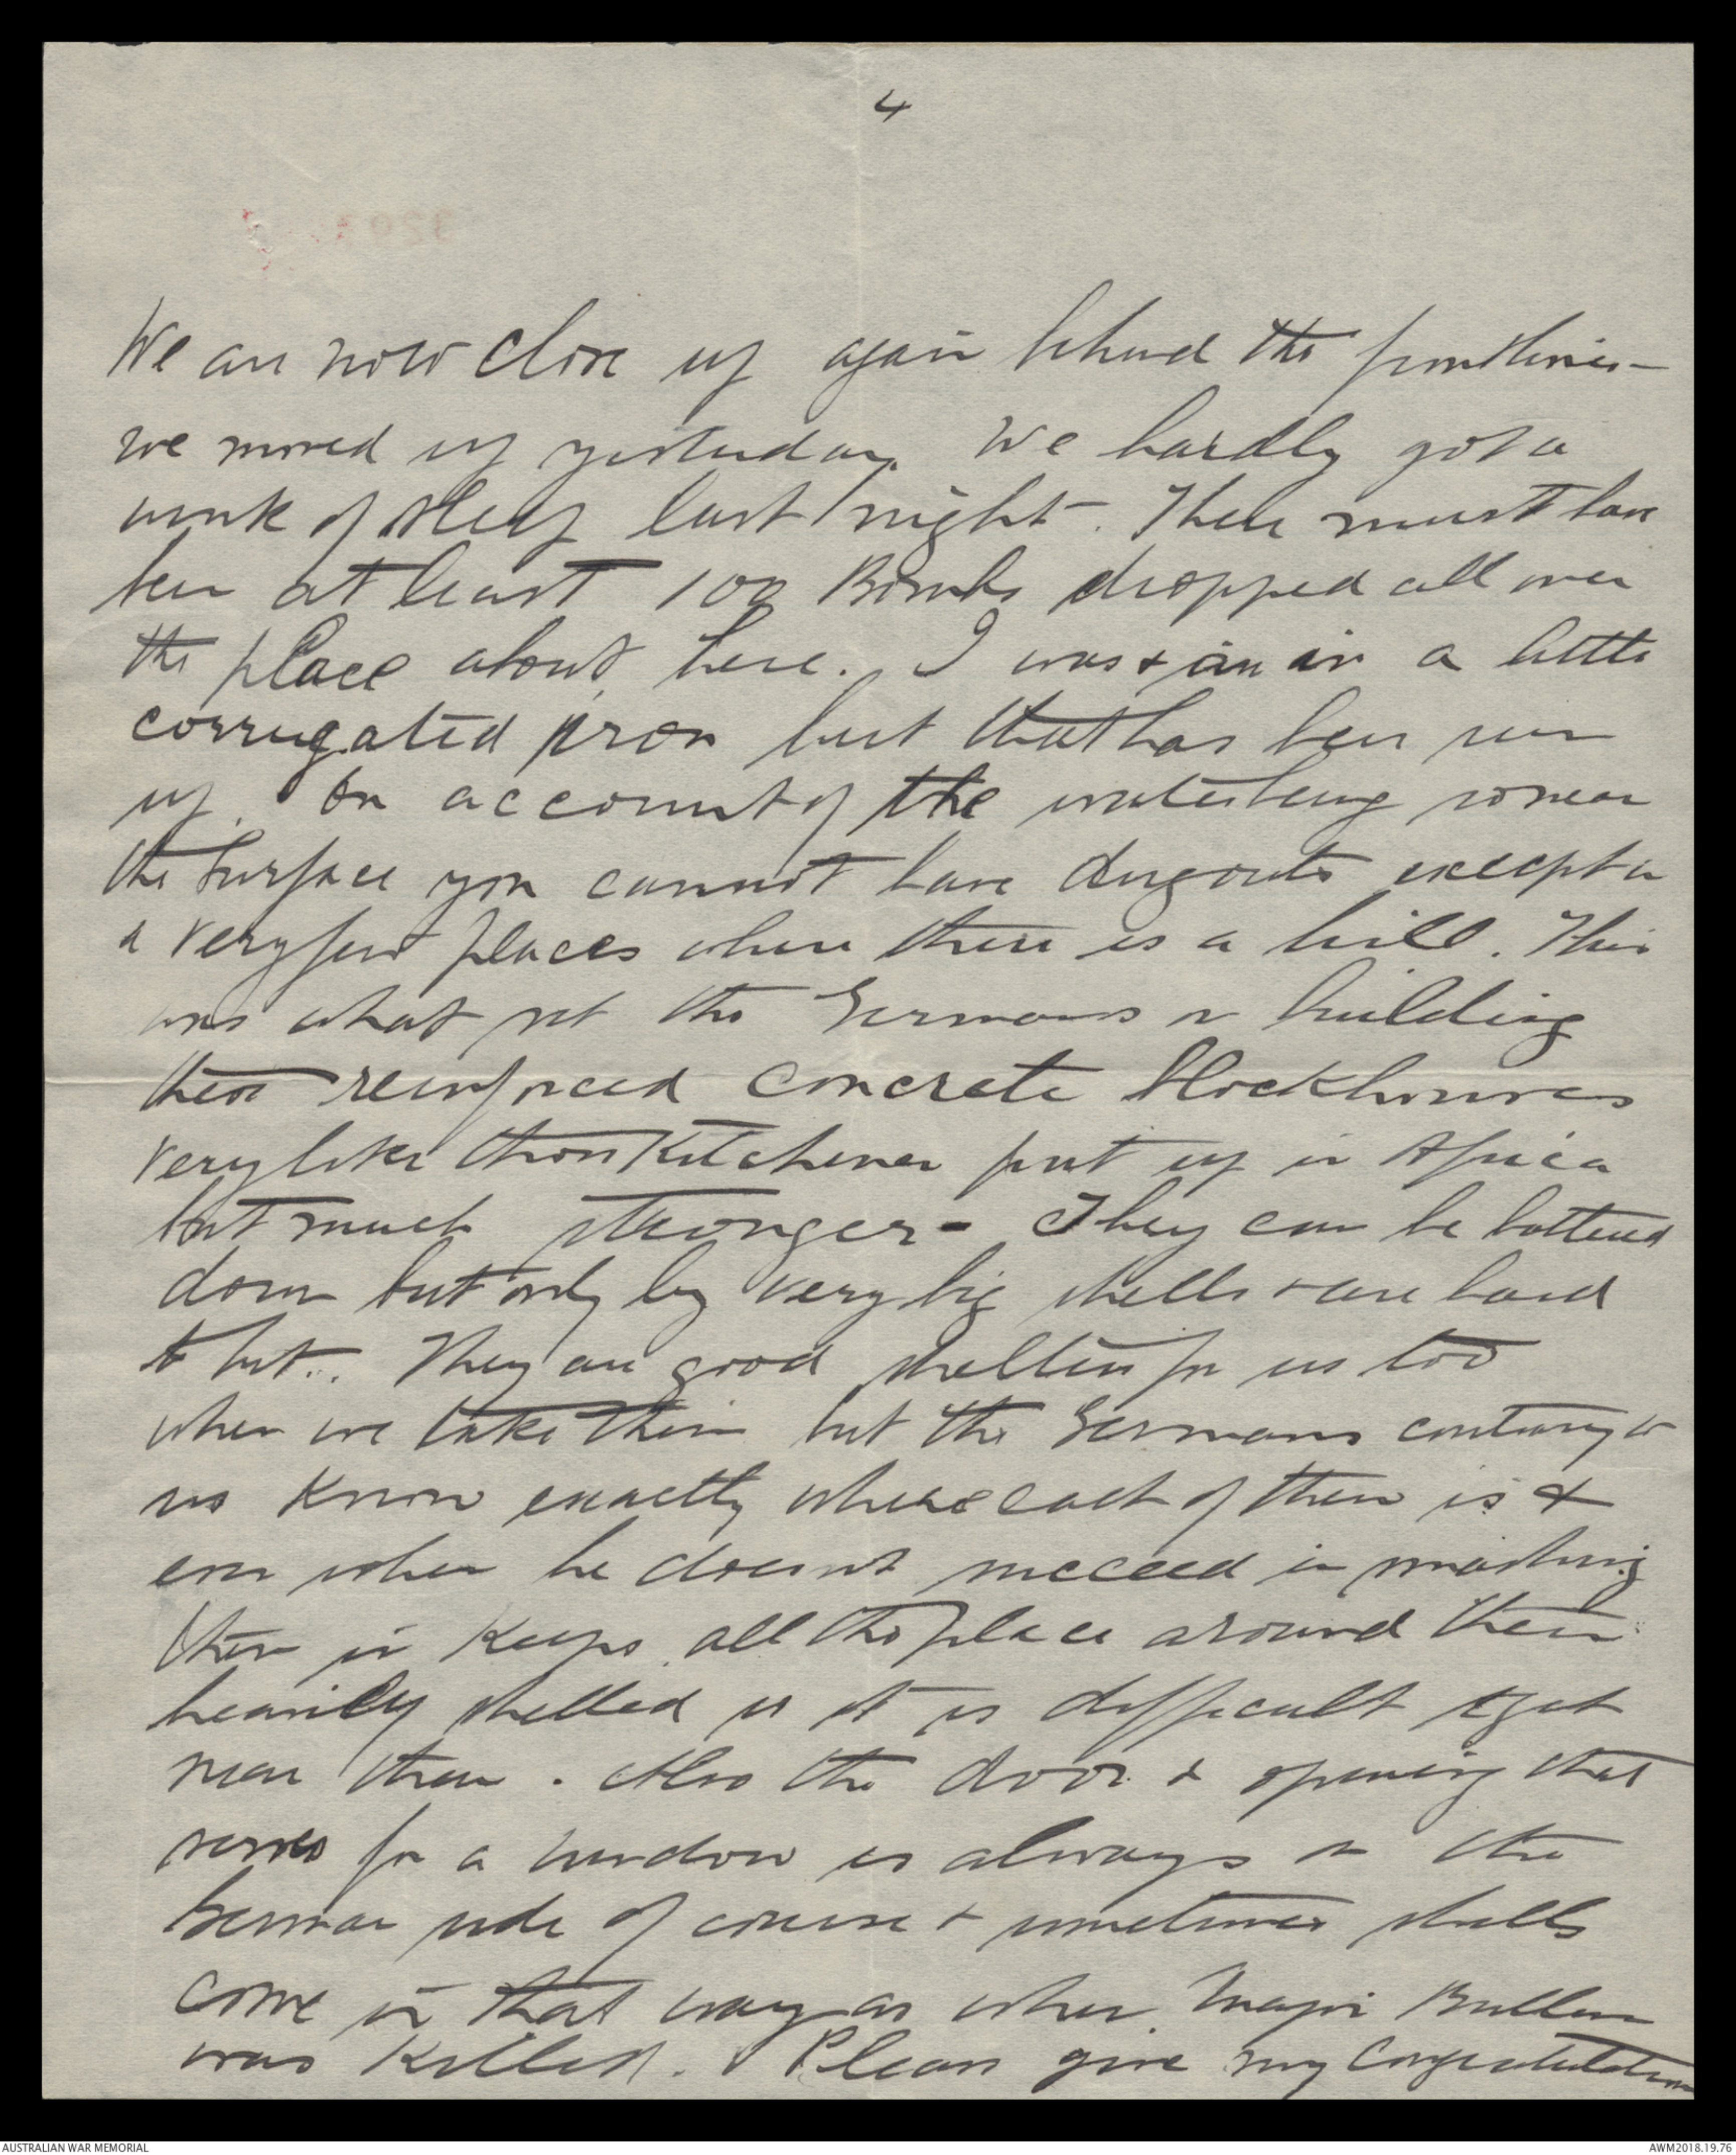 4
We are now close up again behind the frontlines -
we moved up yesterday. We hardly got a
wink of sleep last night. There must have
been at least 100 Bombs dropped all over
the place about here. I was & am in a little
corrugated iron but that has been
up. On account of the water being so near
the surface you cannot have dugouts except in
a very few places where there is a hill. This
was what set the Germans on building
these reinforced concrete blockhouses
very like those Kitchener put up in Africa
but much stronger - They can be battered
down but only by very big shells & are hard
to hit. They are good shelters for us too
when we take them but the Germans contrary to
us know exactly where each of them is &
even when he doesn't succeed in smashing
them in keeps all the place around them
heavily shelled so it is difficult to get
near them. Also the door & opening that
serves for a window is always on the
German side of course & sometimes shells
come in that way as when Major Buller
was killed. Please give my congratulations
AUSTRALIAN WAR MEMORIAL
AWM2018.19.76